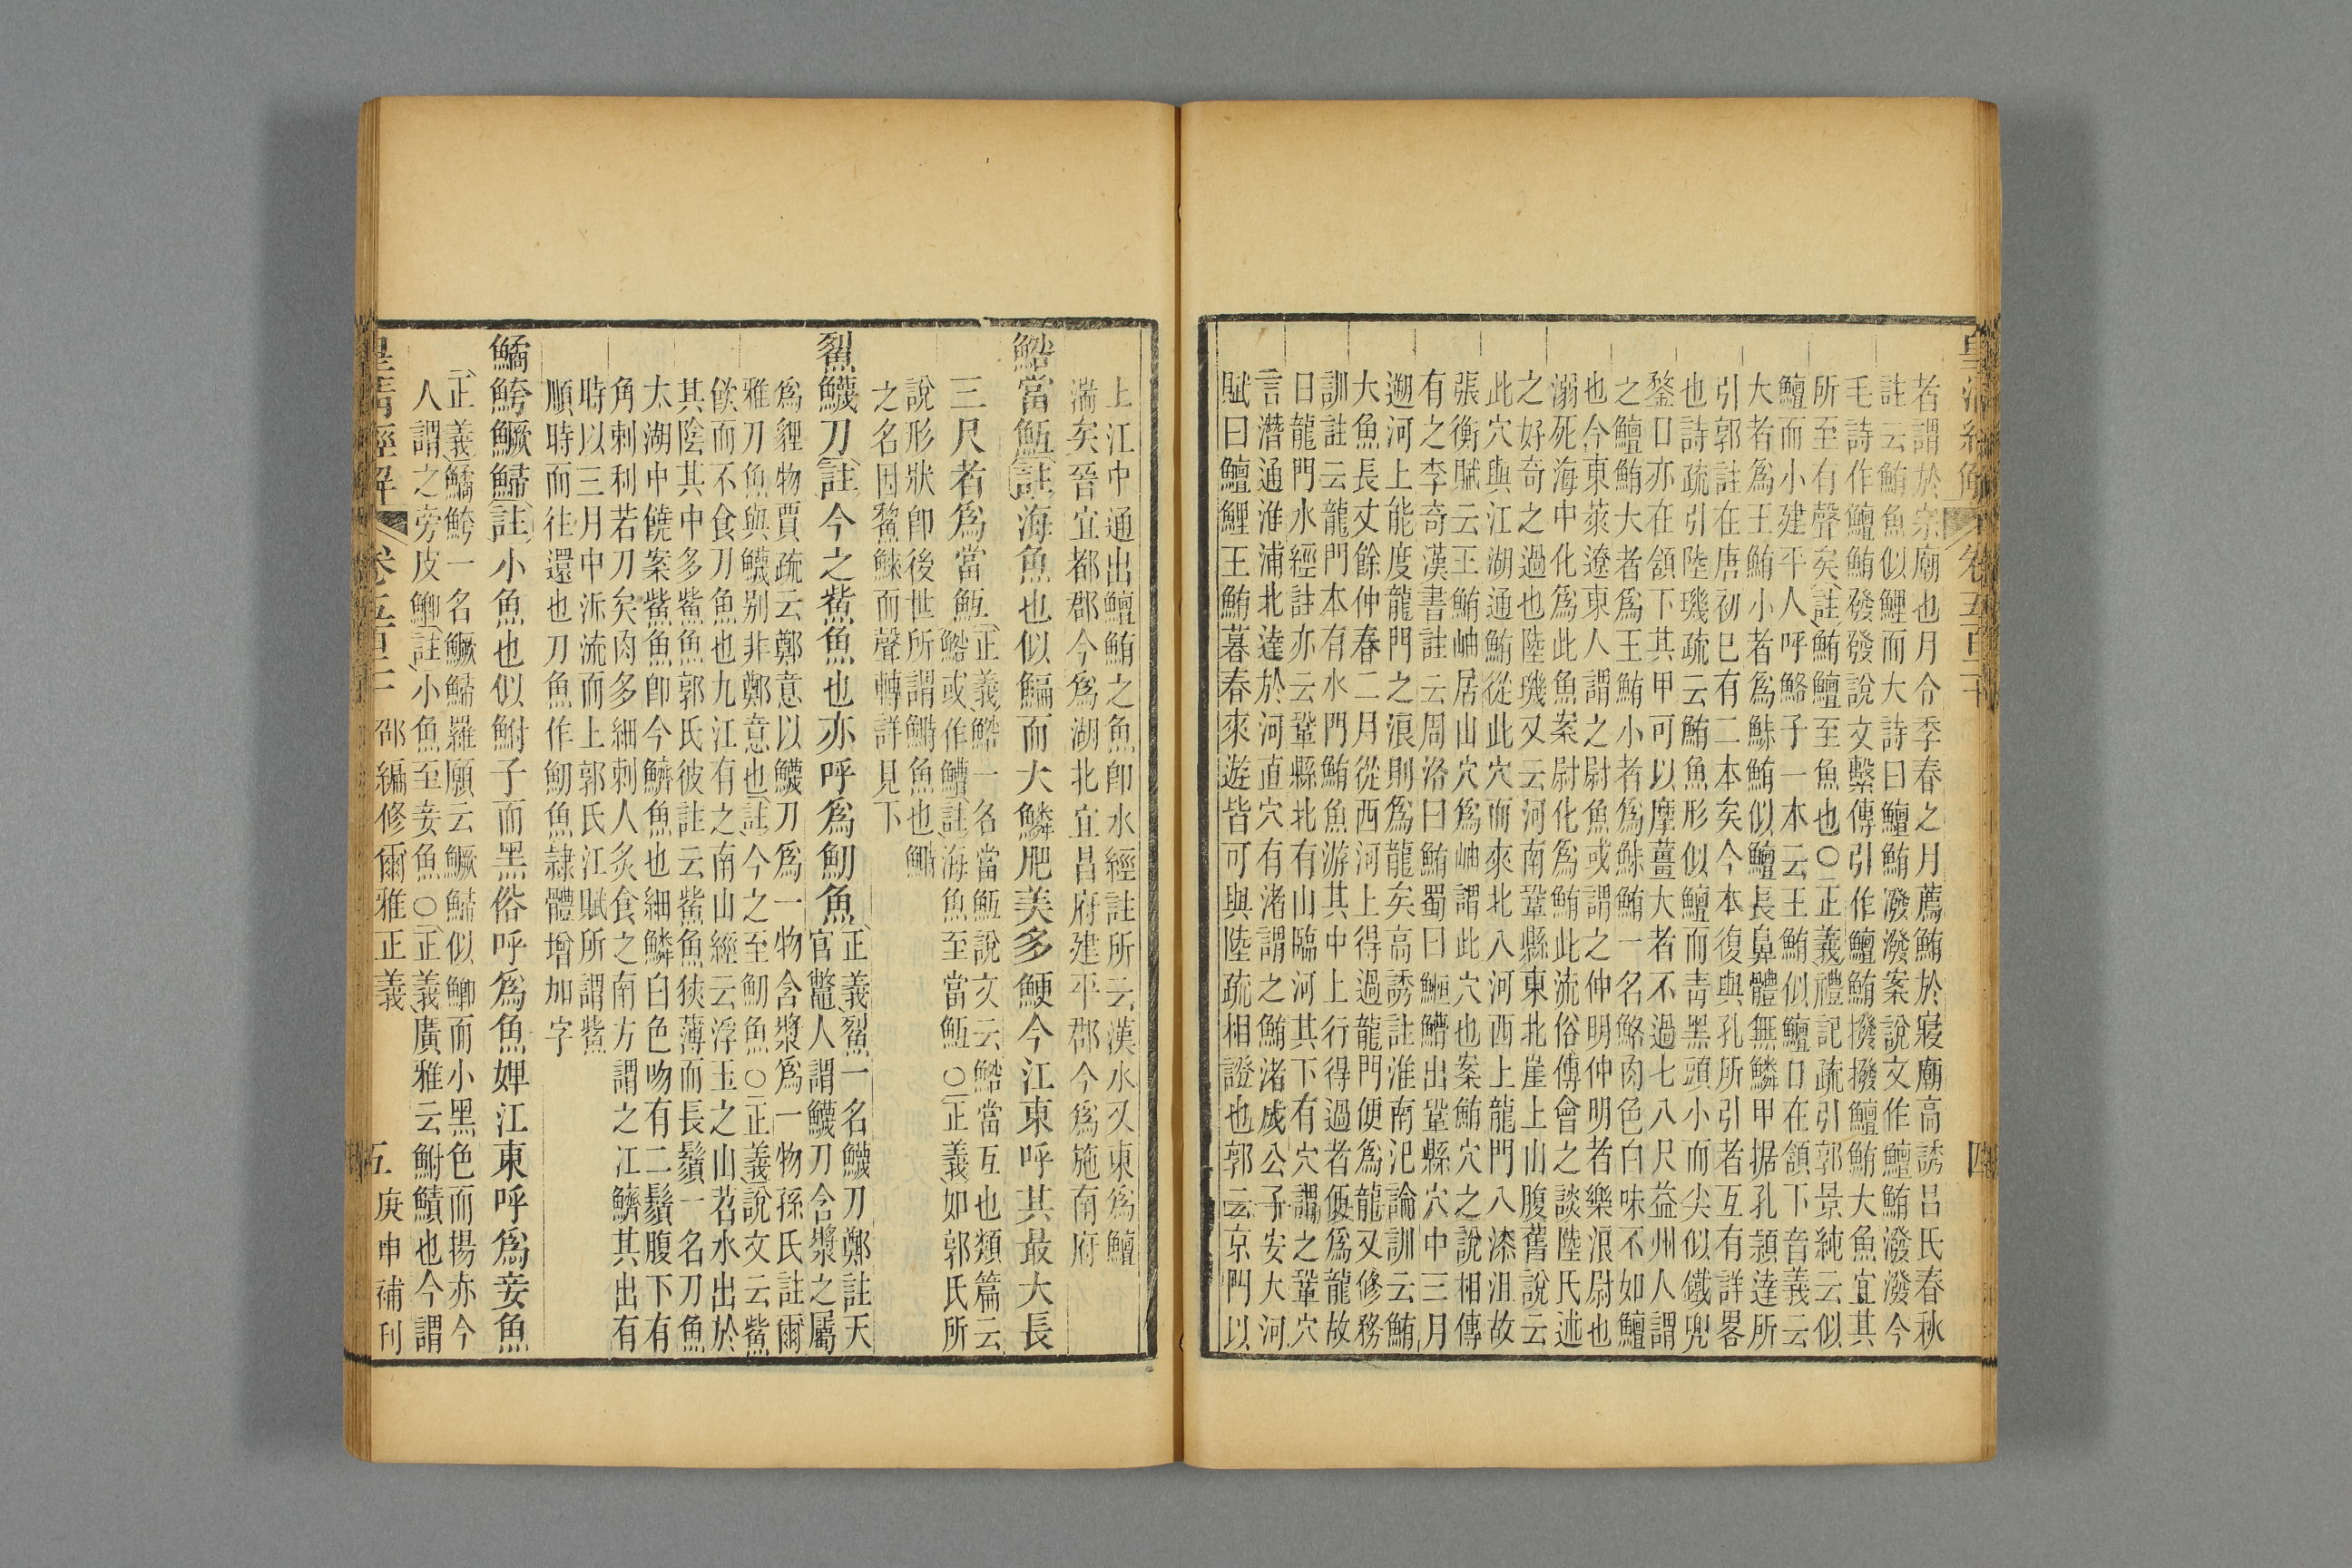 者謂於宗廟也月令季春之月薦鮪於寢廟高誘呂氏春秋
註云鮪魚似鯉而大詩曰鱣鮪潑潑案說文作鱣鮪潑潑今
毛詩作鱣鮪發發說文繫傳引作鱣鮪撥撥鱣鮪大魚宜其
所至有聲矣註鮪鱣至魚也○正義禮記疏引郭景純云似
鱣而小建平人呼鮥子一本云王鮪似鱣口在頷下音義云
大者爲王鮪小者爲鮛鮪似鱣長鼻體無鱗甲据孔穎達所
引郭註在唐初已有二本矣今本復與孔所引者互有詳畧
也詩疏引陸璣疏云鮪魚形似鱣而青黑頭小而尖似鐵兜
鍪口亦在頷下其甲可以摩薑大者不過七八尺益州人謂
之鱣鮪大者爲王鮪小者爲鮛鮪一名鮥肉色白味不如鱣
也今東萊遼東人謂之尉魚或謂之仲明仲明者樂浪尉也
溺死海中化爲此魚案尉化爲鮪此流俗傅會之談陸氏述
之好奇之過也陸璣又云河南鞏縣東北崖上山腹舊說云
此穴與江湖通鮪從此穴而來北入河西上龍門入漆沮故
張衡賦云王鮪岫居山穴爲岫謂此穴也案鮪穴之說相傳
有之李奇漢書註云周洛曰鮪蜀曰䱭䲛出鞏縣穴中三月
遡河上能度龍門之浪則爲龍矣高誘註淮南氾論訓云鮪
大魚長丈餘仲春二月從西河上得過龍門便爲龍又修務
訓註云龍門本有水門鮪魚游其中上行得過者便爲龍故
曰龍門水經註亦云鞏縣北有山臨河其下有穴謂之鞏穴
言潛通淮浦北達於河直穴有渚謂之鮪渚成公子安大河
賦曰鱣鯉王鮪暮春來遊皆可與陸疏相證也郭云京門以
四
上江中通出鱣鮪之魚卽水經註所云漢水又東爲鱣
湍矣晉宜都郡今爲湖北宜昌府建平郡今爲施南府
鯦當魱註海魚也似鯿而大鱗肥美多鯁今江東呼其最大長
三尺者爲當魱正義鯦一名當魱說文云鯦當互也類篇云
鯦或作䱜註海魚至當魱○正義如郭氏所
說形狀卽後世所謂鰣魚也鰣
之名因鮤鮛而聲轉詳見下
鮤鱴刀註今之鮆魚也亦呼爲魛魚正義鮤一名鱴刀鄭註天
官鼈人謂鱴刀含漿之屬
爲貍物賈疏云鄭意以鱴刀爲一物含漿爲一物孫氏註爾
雅刀魚與鱴別非鄭意也註今之至魛魚○正義說文云鮆
飮而不食刀魚也九江有之南山經云浮玉之山苕水出於
其陰其中多鮆魚郭氏彼註云鮆魚狹薄而長鬚一名刀魚
太湖中饒案鮆魚卽今鱭魚也細鱗白色吻有二鬚腹下有
角刺利若刀矣肉多細刺人炙食之南方謂之江鱭其出有
時以三月中泝流而上郭氏江賦所謂鮆
順時而往還也刀魚作魛魚隷體增加字
鱊鮬鱖鯞註小魚也似鮒子而黑俗呼爲魚婢江東呼爲妾魚
正義鱊鮬一名鱖鯞羅願云鱖鯞似鯽而小黑色而揚赤今
人謂之旁皮鯽註小魚至妾魚○正義廣雅云鮒鰿也今謂
皇清經解 卷五百二十 邵編修爾雅正義 五 庚申補刊